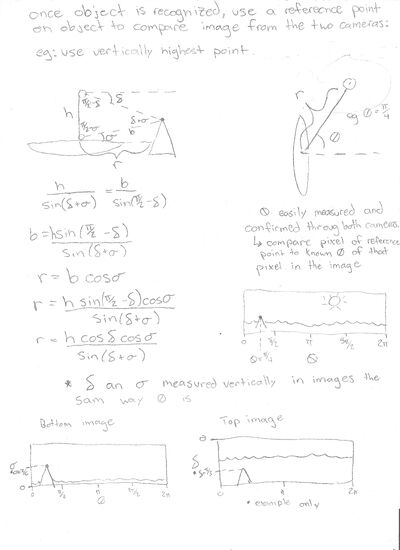 once object is recognized, use a reference point
on object to compare image from the two cameras:
eg: use vertically highest point.
π/2-δ
δ
h
π/2-σ
σ
δ+σ
b
r
r
eg Ø = π/4
Ø
h/sin(δ+σ) = b/sin(π/2-δ)
b = h sin(π/2-δ)/sin(δ+σ)
r = b cosσ
r = h sin(π/2-δ)cosσ/sin(δ+σ)
r = h cosδ cosσ/sin(δ+σ)
Ø easily measured and
confirmed throug both cameras.
↳ compare pixel of reference
point to known Ø of that
pixel in the image
0 π/2 π 2π
Ø=π/4 Ø
* δ an σ measured vertically in images the
sam way Ø is
Bottom image
σ
0
0 π/2 π 2π
Ø
Top image
0
δ
0 π 2π
* example only